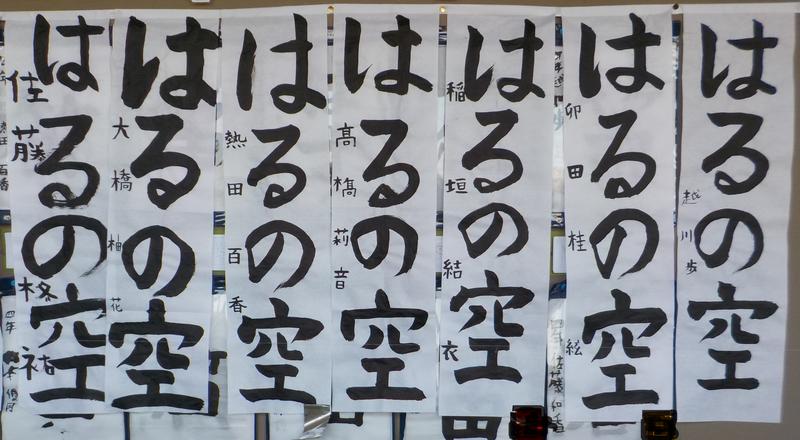 はるの空
越川歩
はるの空
卯田桂絵
はるの空
稲垣結衣
はるの空
髙橋莉音
はるの空
熱田百香
はるの空
大橋柚花
はるの空
佐藤柊祐